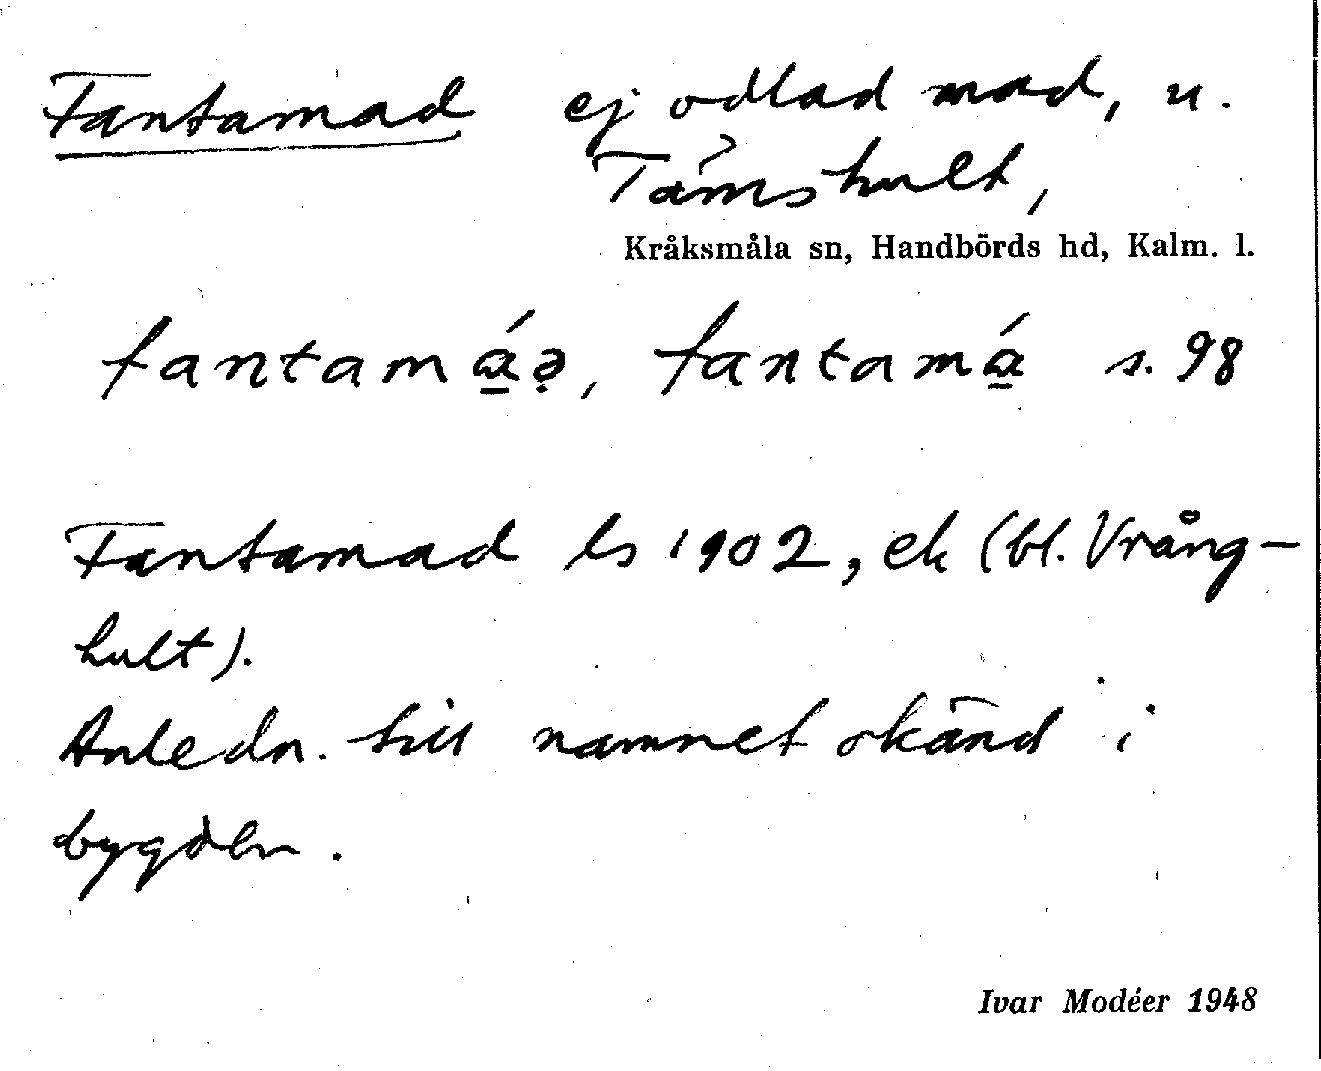 Fantamad ej odlad mad, u.
Tåmshult,
Kråksmåla sn, Handbörds hd, Kalm. l.
fantamá̱ə̣, fantamá̱ s. 98
Fantamad ls 1902, ek (bl. Vrång-
hult).
Anledn. till namnet okänd i
bygden.
Ivar Modéer 1948